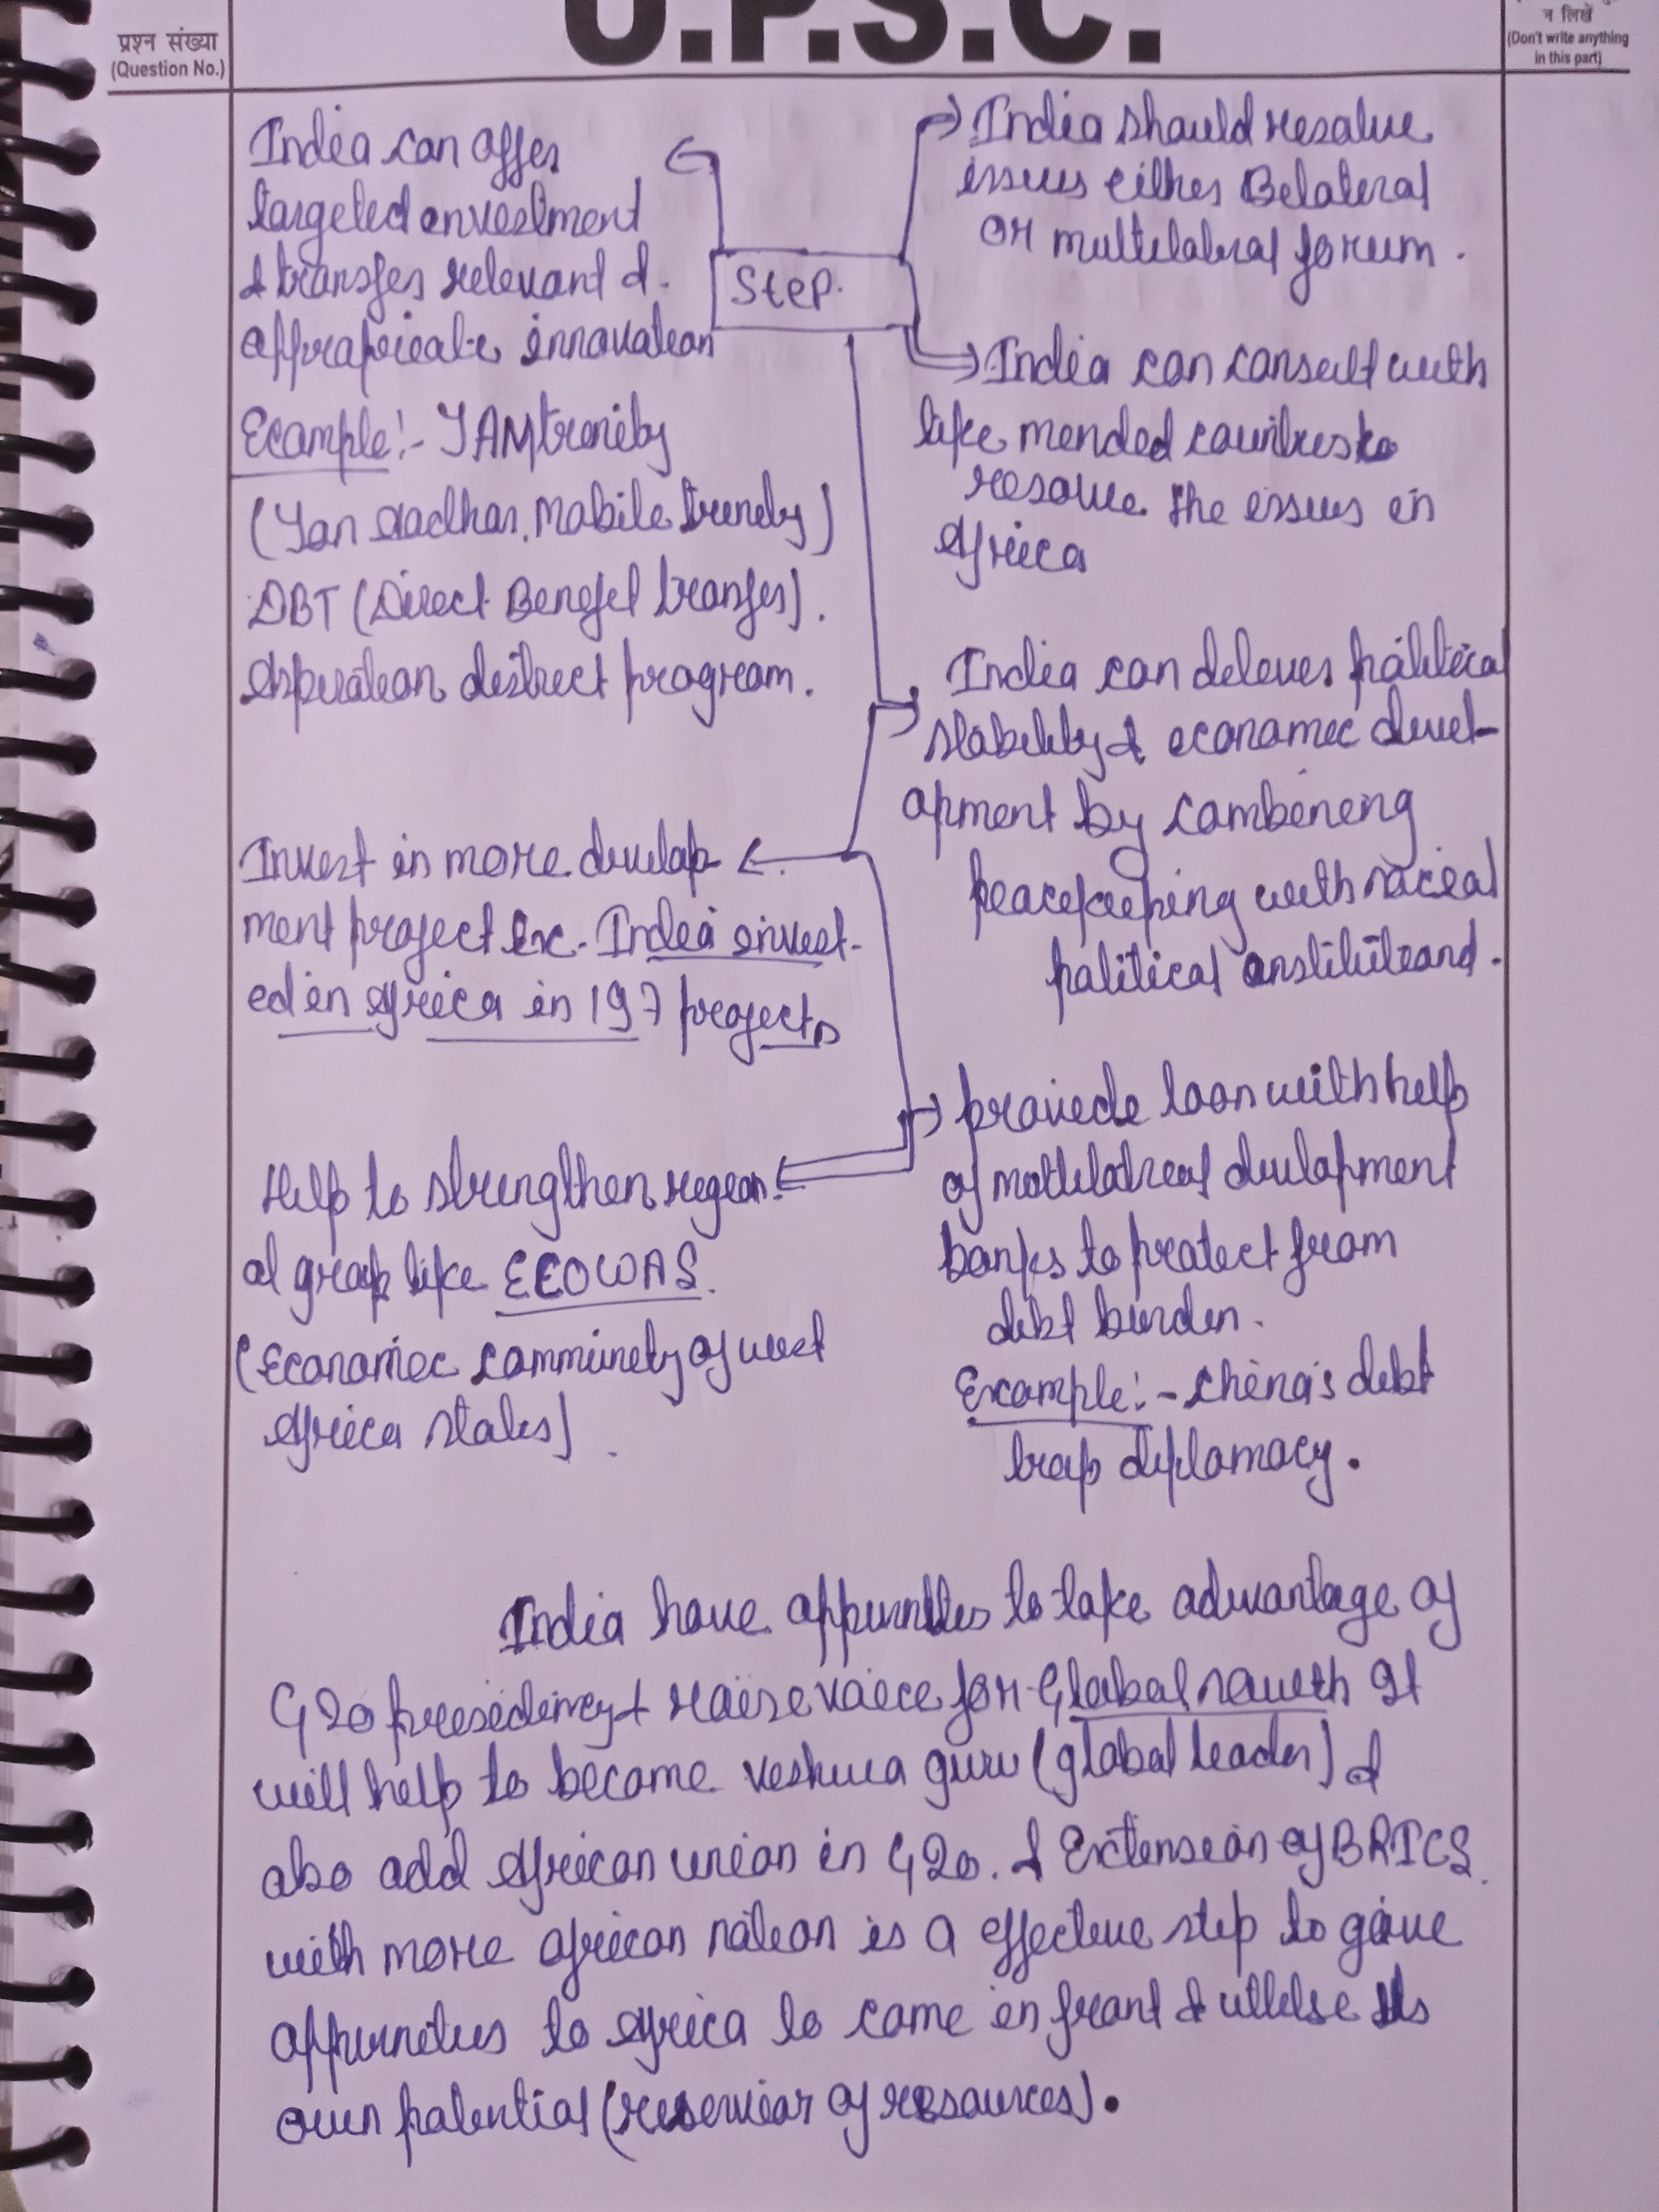 प्रश्न संख्या
(Question No.)
U.P.S.C.
न लिखें
(Don't write anything
in this part)
India can offer
targeted investment
& transfer relevant &
appropriate innovation
Example:- JAM trinity
(Jan Aadhar, Mobile trinity)
DBT (Direct Benefit transfer).
Aspiration district program.
Invest in more develop-
ment project Ex. India invest-
ed in Africa in 197 projects
Help to strengthen region-
al group like ECOWAS.
(Economic community of west
Africa states)
Step.
India should resolve
issues either Bilateral
or multilateral forum.
India can consult with
like minded countries to
resolve the issues in
Africa
India can delever political
stability & economic devel-
opment by combining
peacekeeping with social
political institutions.
provide loan with help
of multilateral development
banks to protect from
debt burden.
Example:- China's debt
trap diplomacy.
India have oppurnities to take advantage of
G20 presidency & raise voice for Global south It
will help to become veshwa guru (global leader) &
also add African union in G20. & Extension of BRICS
with more african nation is a effective step to give
oppurnities to Africa to come in front & utilise its
own potential (reservior of resources).